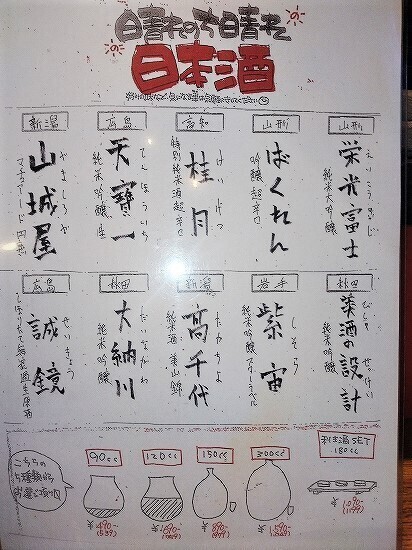 日本酒
山形
栄光富士
えいこうふじ
純米大吟醸
山形
ばくれん
吟醸 超辛口
高知
桂月
けいげつ
特別純米酒 超辛口
広島
天寶一
てんぽういち
純米吟醸
新潟
山城屋
やましろや
秋田
美酒の設計
びしゅ せっけい
純米吟醸
岩手
紫宙
しそら
純米吟醸
新潟
髙千代
たかちよ
純米酒 美山錦
秋田
大納川
だいながわ
純米吟醸
広島
誠鏡
せいきょう
こちらの
90cc
¥490-
(539)
120cc
¥690-
150cc
¥890-
(979)
300cc
利き酒SET
180cc